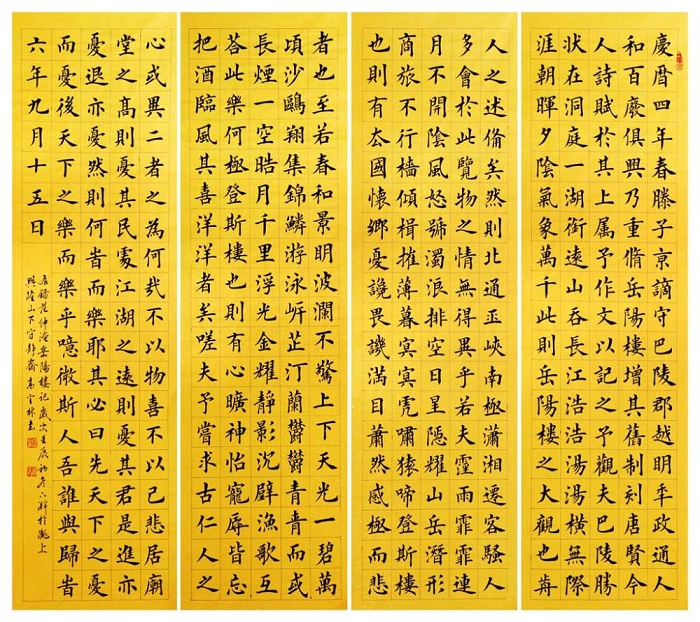 慶曆四年春滕子京謫守巴陵郡越明年政通人
和百廢俱興乃重脩岳陽樓增其舊制刻唐賢今
人詩賦於其上属予作文以記之予觀夫巴陵勝
状在洞庭一湖銜遠山吞長江浩浩湯湯橫無際
涯朝暉夕陰氣象萬千此則岳陽樓之大觀也前
人之述備矣然則北通巫峽南極瀟湘遷客騷人
多會於此覽物之情無得異乎若夫霪雨霏霏連
月不開陰風怒號濁浪排空日星隱耀山岳潛形
商旅不行檣傾楫摧薄暮冥冥虎嘯猿啼登斯樓
也則有去國懷鄉憂讒畏譏滿目蕭然感極而悲
者也至若春和景明波瀾不驚上下天光一碧萬
頃沙鷗翔集錦鱗游泳岍芷汀蘭鬱鬱青青而或
長煙一空皓月千里浮光金耀靜影沉璧漁歌互
答此樂何極登斯樓也則有心曠神怡寵辱皆忘
把酒臨風其喜洋洋者矣嗟夫予嘗求古仁人之
心或異二者之為何哉不以物喜不以己悲居廟
堂之高則憂其民處江湖之遠則憂其君是進亦
憂退亦憂然則何時而樂耶其必曰先天下之憂
而憂後天下之樂而樂乎噫微斯人吾誰與歸時
六年九月十五日
錄范仲淹岳陽樓記歲次壬辰初冬於隴上
興隆山下守靜齋